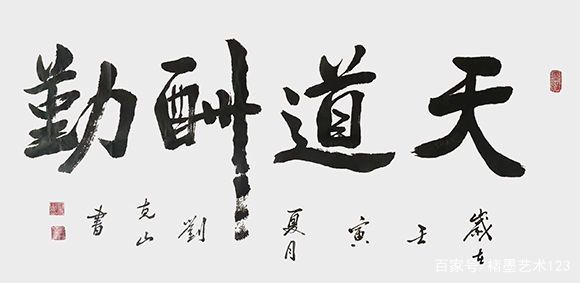 天道酬勤
歲在壬寅夏月劉克山書
百家号/楮墨艺术123